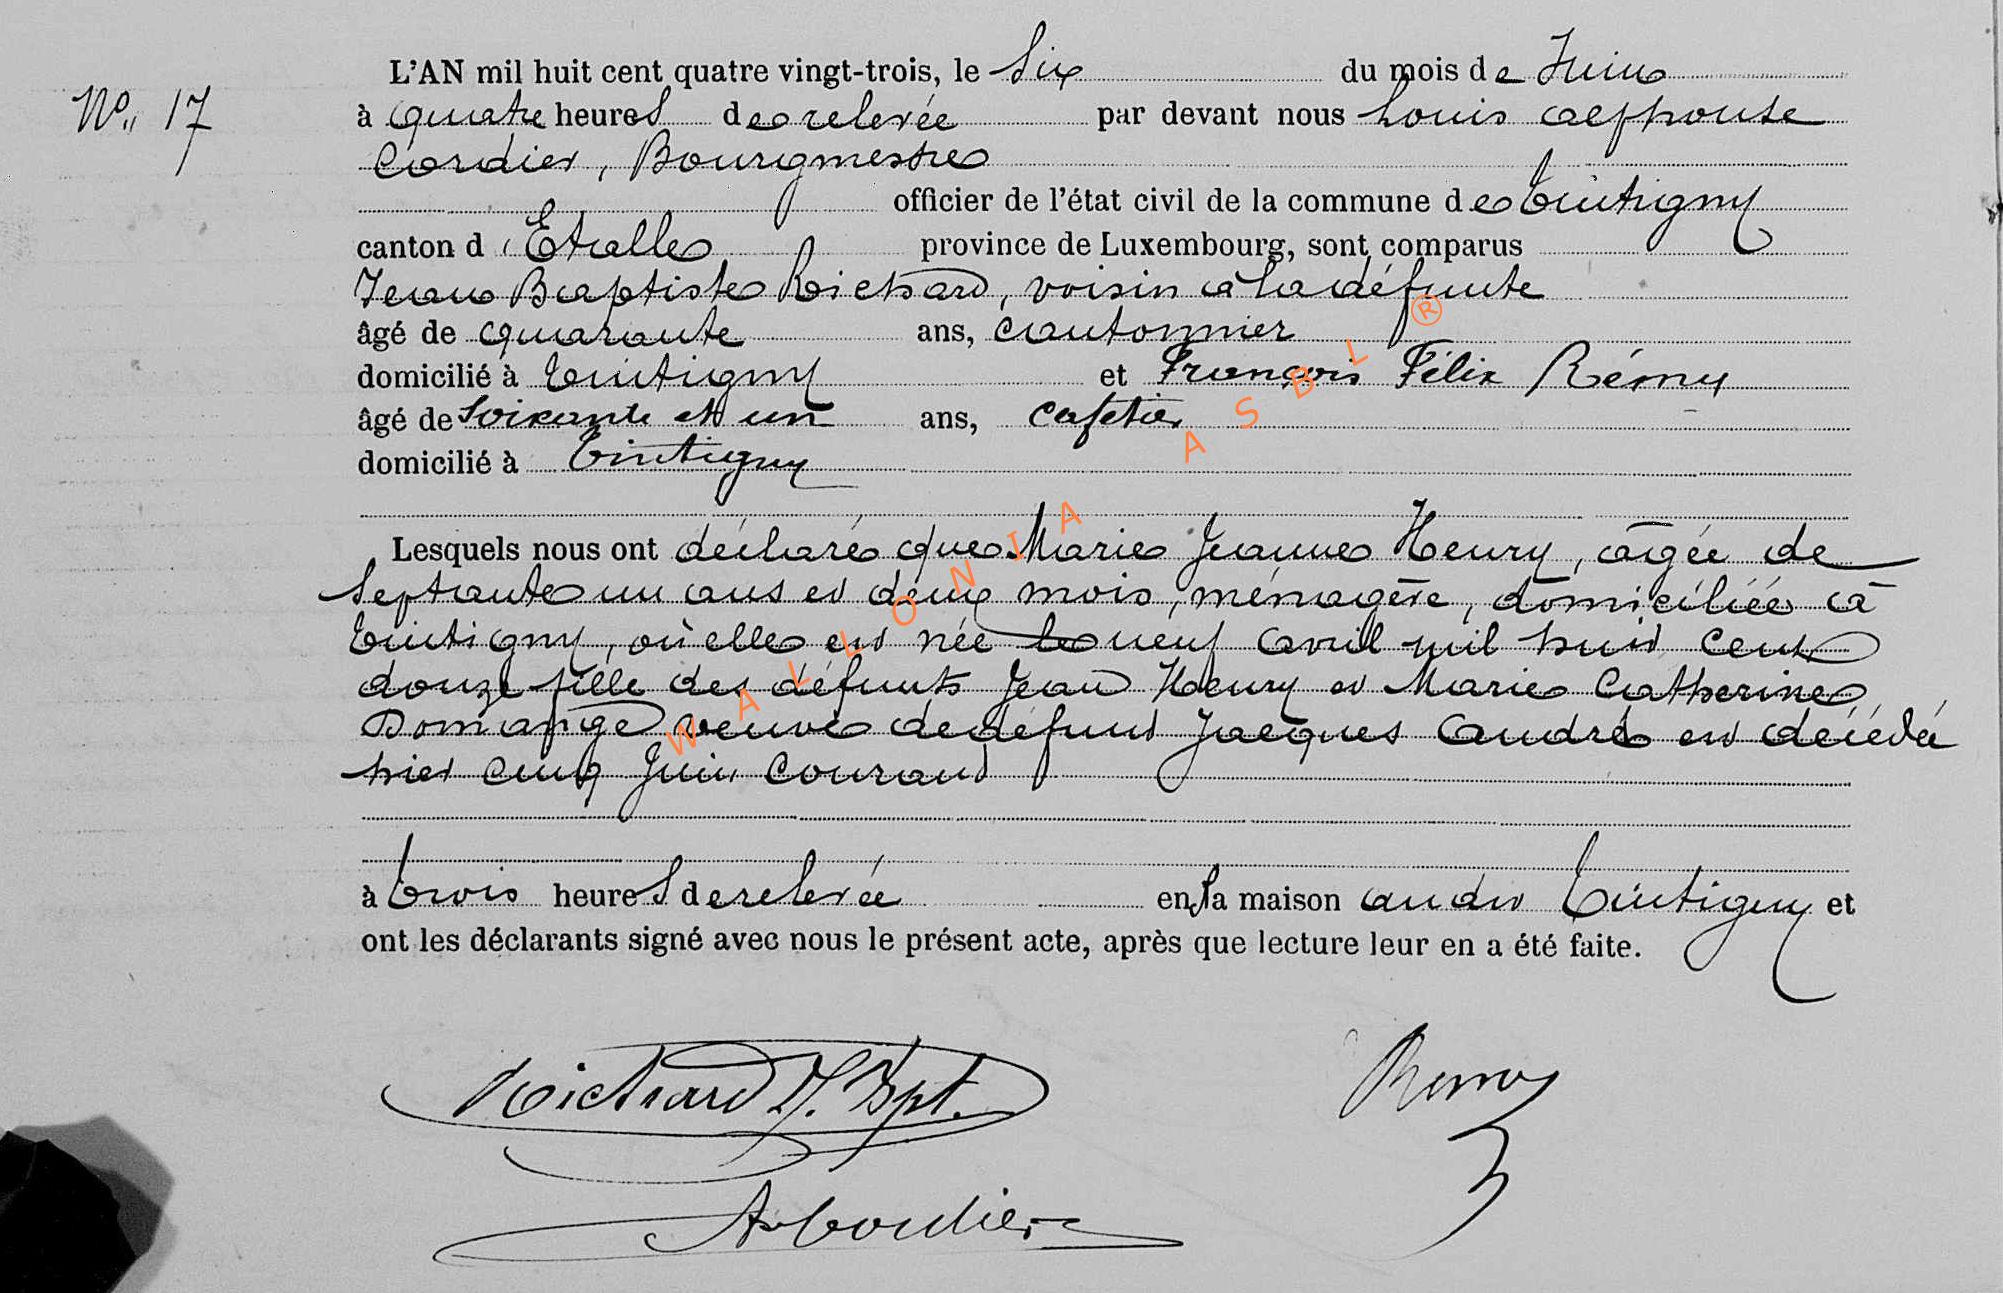 L'AN mil huit cent quatre vingt-trois, le Six du mois de Juin
No. 17
à quatre heures de relevée par devant nous Louis alphonse
Cordier, Bourgmestre
officier de l'état civil de la commune de Tintigny
canton d'Etalle province de Luxembourg, sont comparus
Jean Baptiste Richard, voisin à la défunte
âgé de quarante ans, cantonnier
domicilié à Tintigny et François Félix Rémy
âgé de soixante et un ans, cafetier
domicilié à Tintigny
Lesquels nous ont déclaré que Marie Jeanne Henry, âgée de
Septante un ans et deux mois, ménagère, domiciliée à
Tintigny, où elle est née le neuf avril mil huit cent
douze fille des défunts Jean Henry et Marie Catherine
Domange veuve de défunt Jacques André est décédée
hier cinq Juin courant
à trois heures de relevée en sa maison audit Tintigny et
ont les déclarants signé avec nous le présent acte, après que lecture leur en a été faite.
Richard J. Bpt.
Remy
A Cordier
WALLONIA ASBL ®